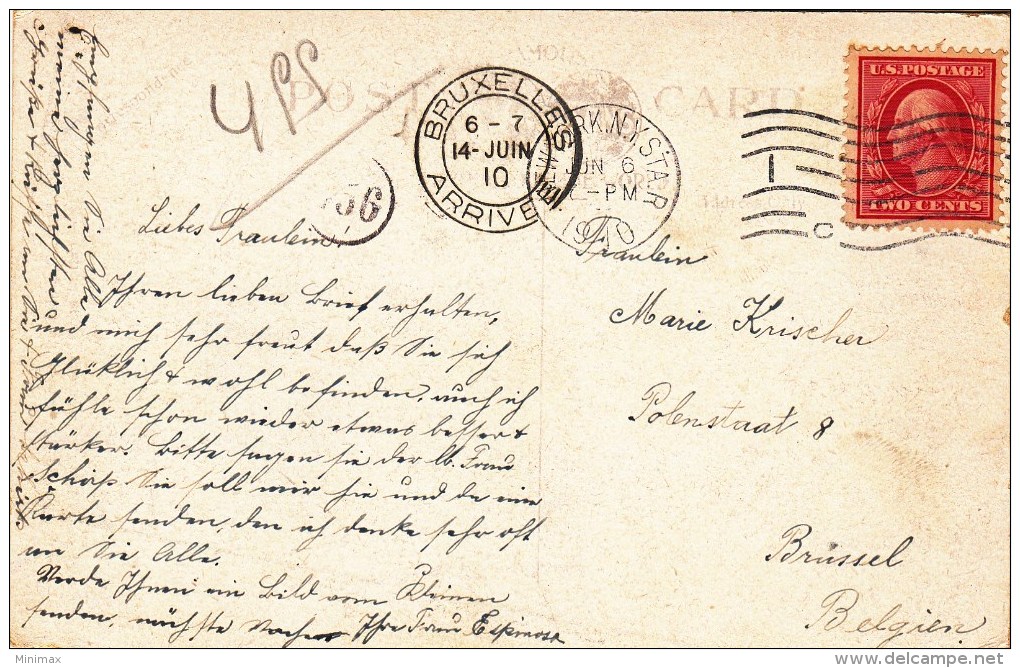 POST CARD
4 PSS
BRUXELLES
6 - 7
14-JUIN
10
ARRIVE
RK.N.Y STA.R
JUN 6
-PM
1910
U.S. POSTAGE
TWO CENTS
1
C
56
Liebes Fraulein!
Ihren lieben Brief erhalten,
und mich sehr freut daß Sie sich
Glüklich & wohl befinden, auch ich
fühle schon wieder etwas besser &
stärker. Bitte sagen sie der lb. Frau
Schöps Sie soll mir hie und da eine
Karte senden, den ich denke sehr oft
an Sie Alle.
Werde Ihnen ein Bild vom Kleinen
senden, nächste Woche Ihre Frau Espinosa
Sie Alle
meiner herzlichsten
Grüße & Küsse an Sie &
Fraulein
Marie Krischer
Polenstraat 8
Brüssel
Belgien.
Minimax
www.delcampe.net